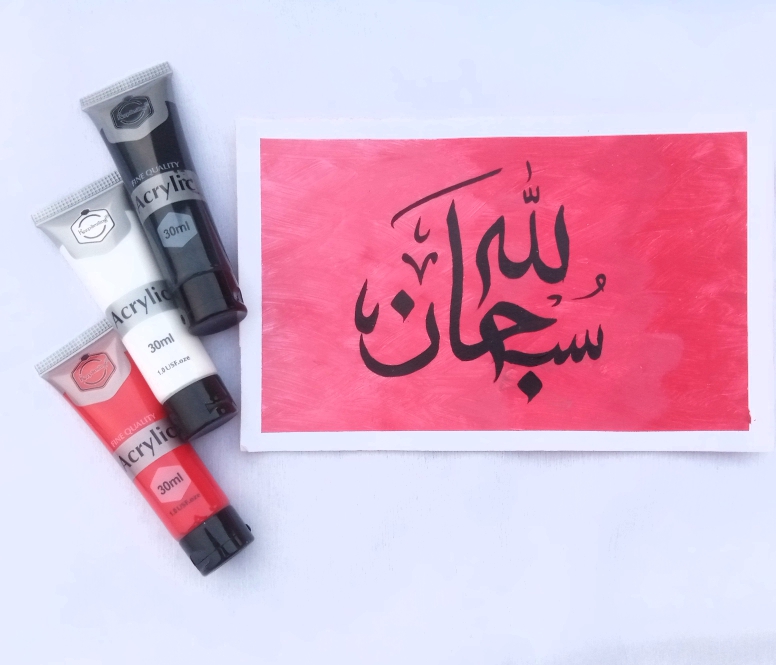 FINE QUALITY
Acrylic
30ml
Acrylic
30ml
1.0 US F.oze
FINE QUALITY
Acrylic
30ml
1.0 US F.oze
سُبحان الله